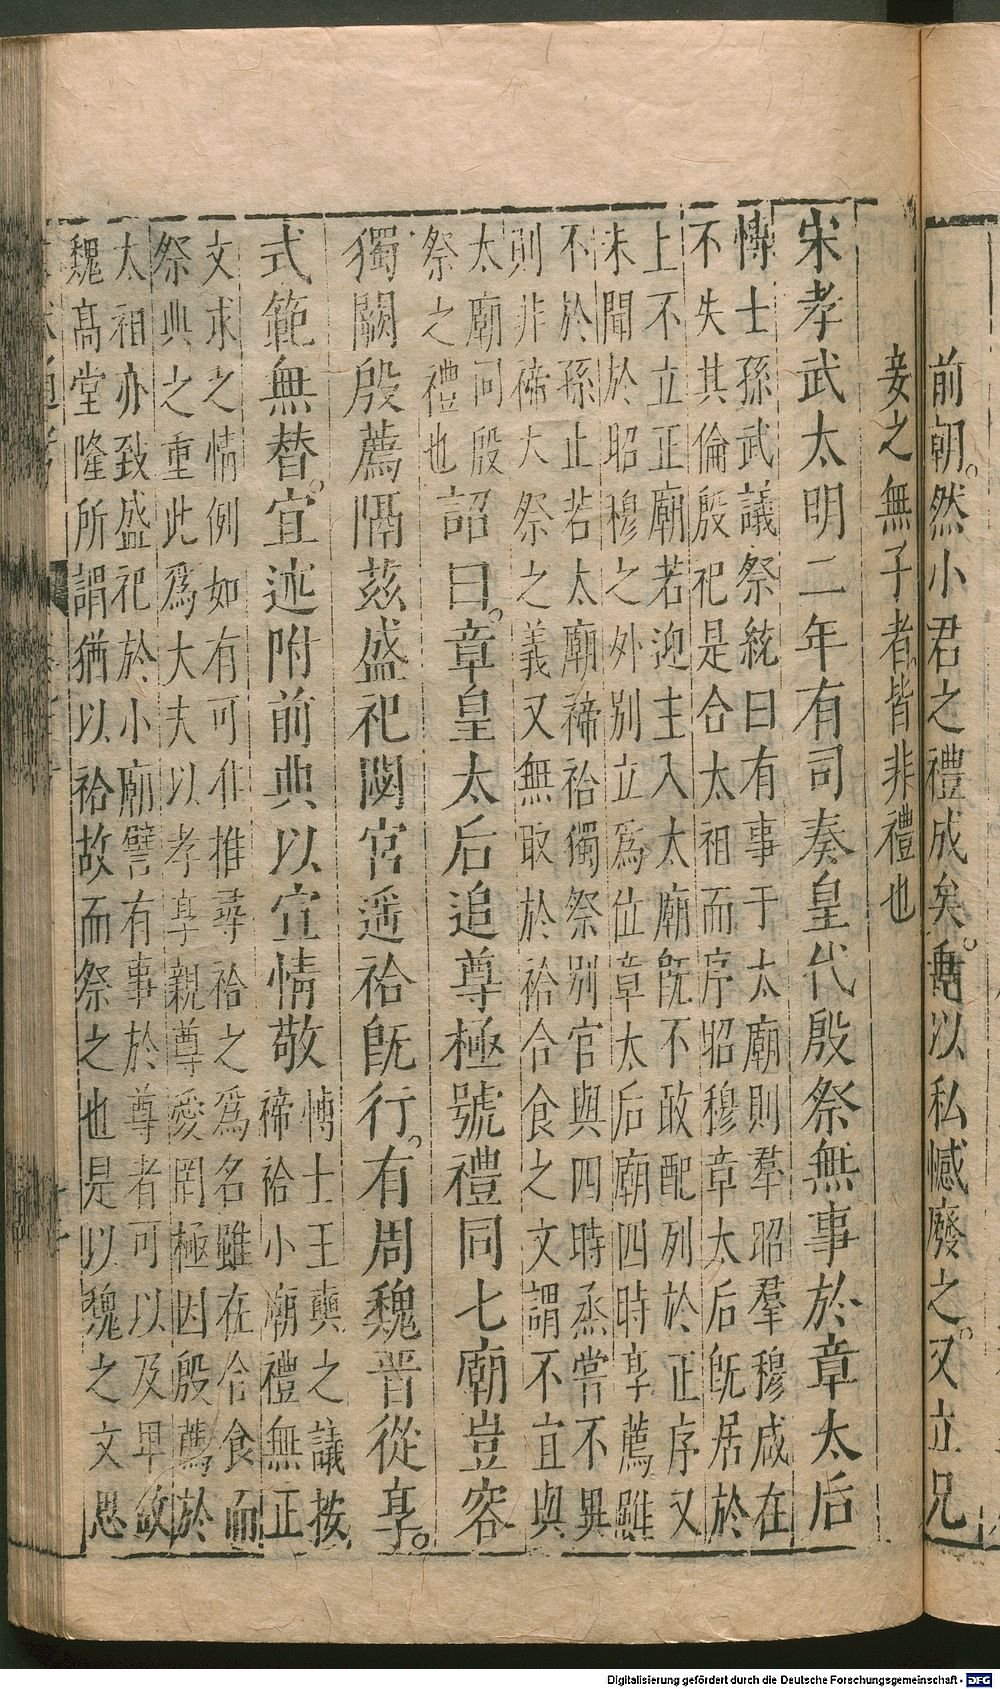 前朝。然小君之禮成矣。以私憾廢之。又立兄
妾之無子者皆非禮也
宋孝武太明二年有司奏皇代殷祭無事於章太后
博士孫武議祭統曰有事于太廟則羣昭羣穆咸在
不失其倫殷祀是合太祖而序昭穆章太后旣居於
上不立正廟若迎主入太廟旣不敢配列於正序又
未聞於昭穆之外別立爲位章太后廟四時享薦雖
不於孫止若太廟禘祫獨祭別宮與四時烝嘗不異
則非禘大祭之義又無取於祫合食之文謂不宜與
太廟同殷
祭之禮也
詔曰。章皇太后追尊極號禮同七廟豈容
獨闕殷薦隔茲盛祀閟宮遥祫旣行。有周魏晋從享。
式範無替。宜述附前典以宣情敬
博士王燮之議按
禘祫小廟禮無正
文求之情例如有可准推尋祫之爲名雖在合食而
祭典之重此爲大夫以孝享親尊愛罔極因殷薦於
太祖亦致盛祀於小廟譬有事於尊者可以及卑故
魏高堂隆所謂猶以祫故而祭之也是以魏之文思
Digitalisierung gefördert durch die Deutsche Forschungsgemeinschaft - DFG